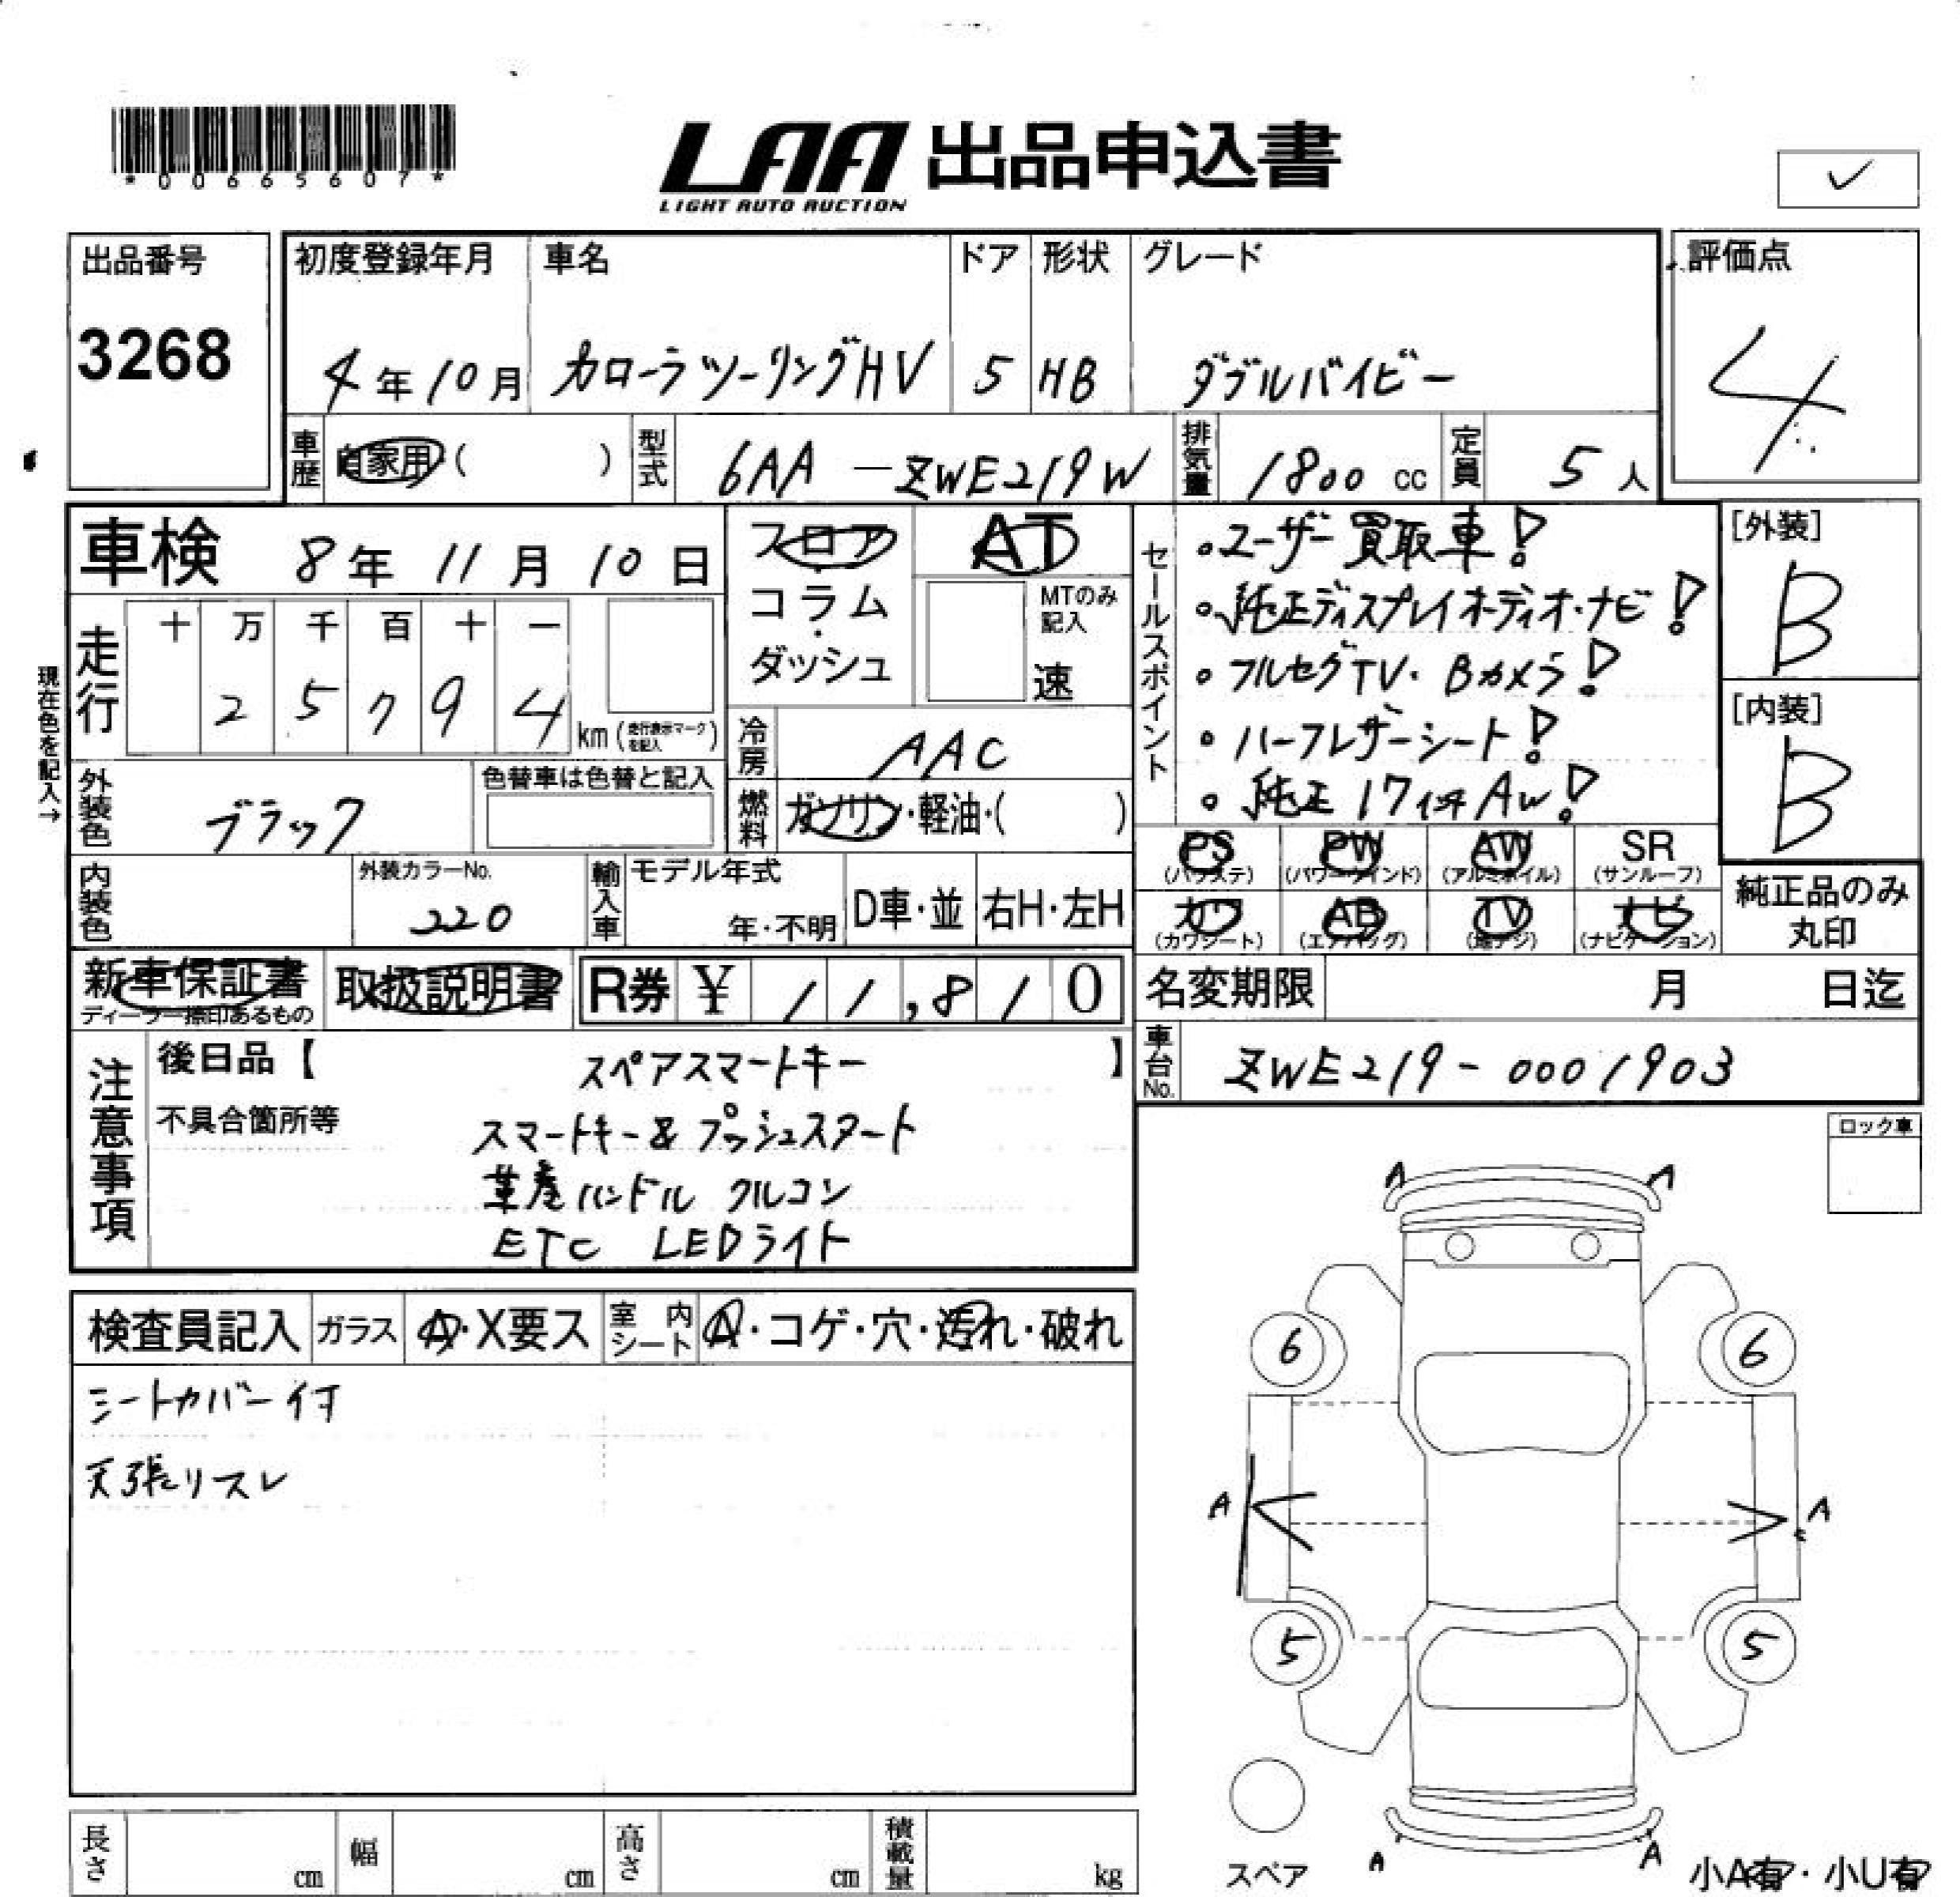 *00665607*
LAA 出品申込書
LIGHT AUTO AUCTION
✓
出品番号
3268
初度登録年月 車名 ドア 形状 グレード
4年10月 カローラツーリングHV 5 HB ダブルバイビー
評価点
4
車歴 自家用・( ) 型式 6AA-ZWE219W 排気量 1800cc 定員 5人
車検 8年11月10日
フロア・コラム・ダッシュ
AT
MTのみ記入
速
走行
十 万 千 百 十 一
2 5 7 9 4 km(走行表示マークを記入)
現在色を記入→
外装色 ブラック
色替車は色替と記入
冷房 AAC
燃料 ガソリン・軽油・( )
セールスポイント
・ユーザー買取車!
・純正ディスプレイオーディオ・ナビ!
・フルセグTV・Bカメラ!
・ハーフレザーシート!
・純正17インチAW!
[外装]
B
[内装]
B
内装色
外装カラーNo.
220
輸入車 モデル年式
年・不明 D車・並 右H・左H
PS PW AW SR
(パワステ) (パワーウインド) (アルミホイル) (サンルーフ)
カワ AB TV ナビ
(カワシート) (エアバッグ) (地デジ) (ナビゲーション)
純正品のみ丸印
新車保証書
ディーラー捺印あるもの
取扱説明書
R券 ¥11,810
名変期限 月 日迄
車台No. ZWE219-0001903
注意事項
後日品【 スペアスマートキー 】
不具合箇所等
スマートキー&プッシュスタート
革巻ハンドル クルコン
ETC LEDライト
ロック車
検査員記入 ガラス A・X要ス 室内シート A・コゲ・穴・汚れ・破れ
シートカバー付
天張リスレ
A A
6 6
A A
5 5
A A
スペア
小A有・小U有
長さ cm 幅 cm 高さ cm 積載量 kg